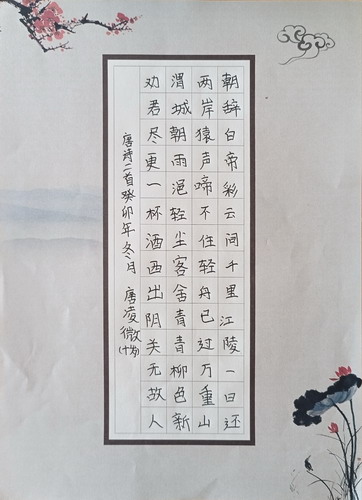 朝辞白帝彩云间千里江陵一日还
两岸猿声啼不住轻舟已过万重山
渭城朝雨浥轻尘客舍青青柳色新
劝君尽更一杯酒西出阳关无故人
唐诗二首癸卯年冬月 唐凌微(十岁)